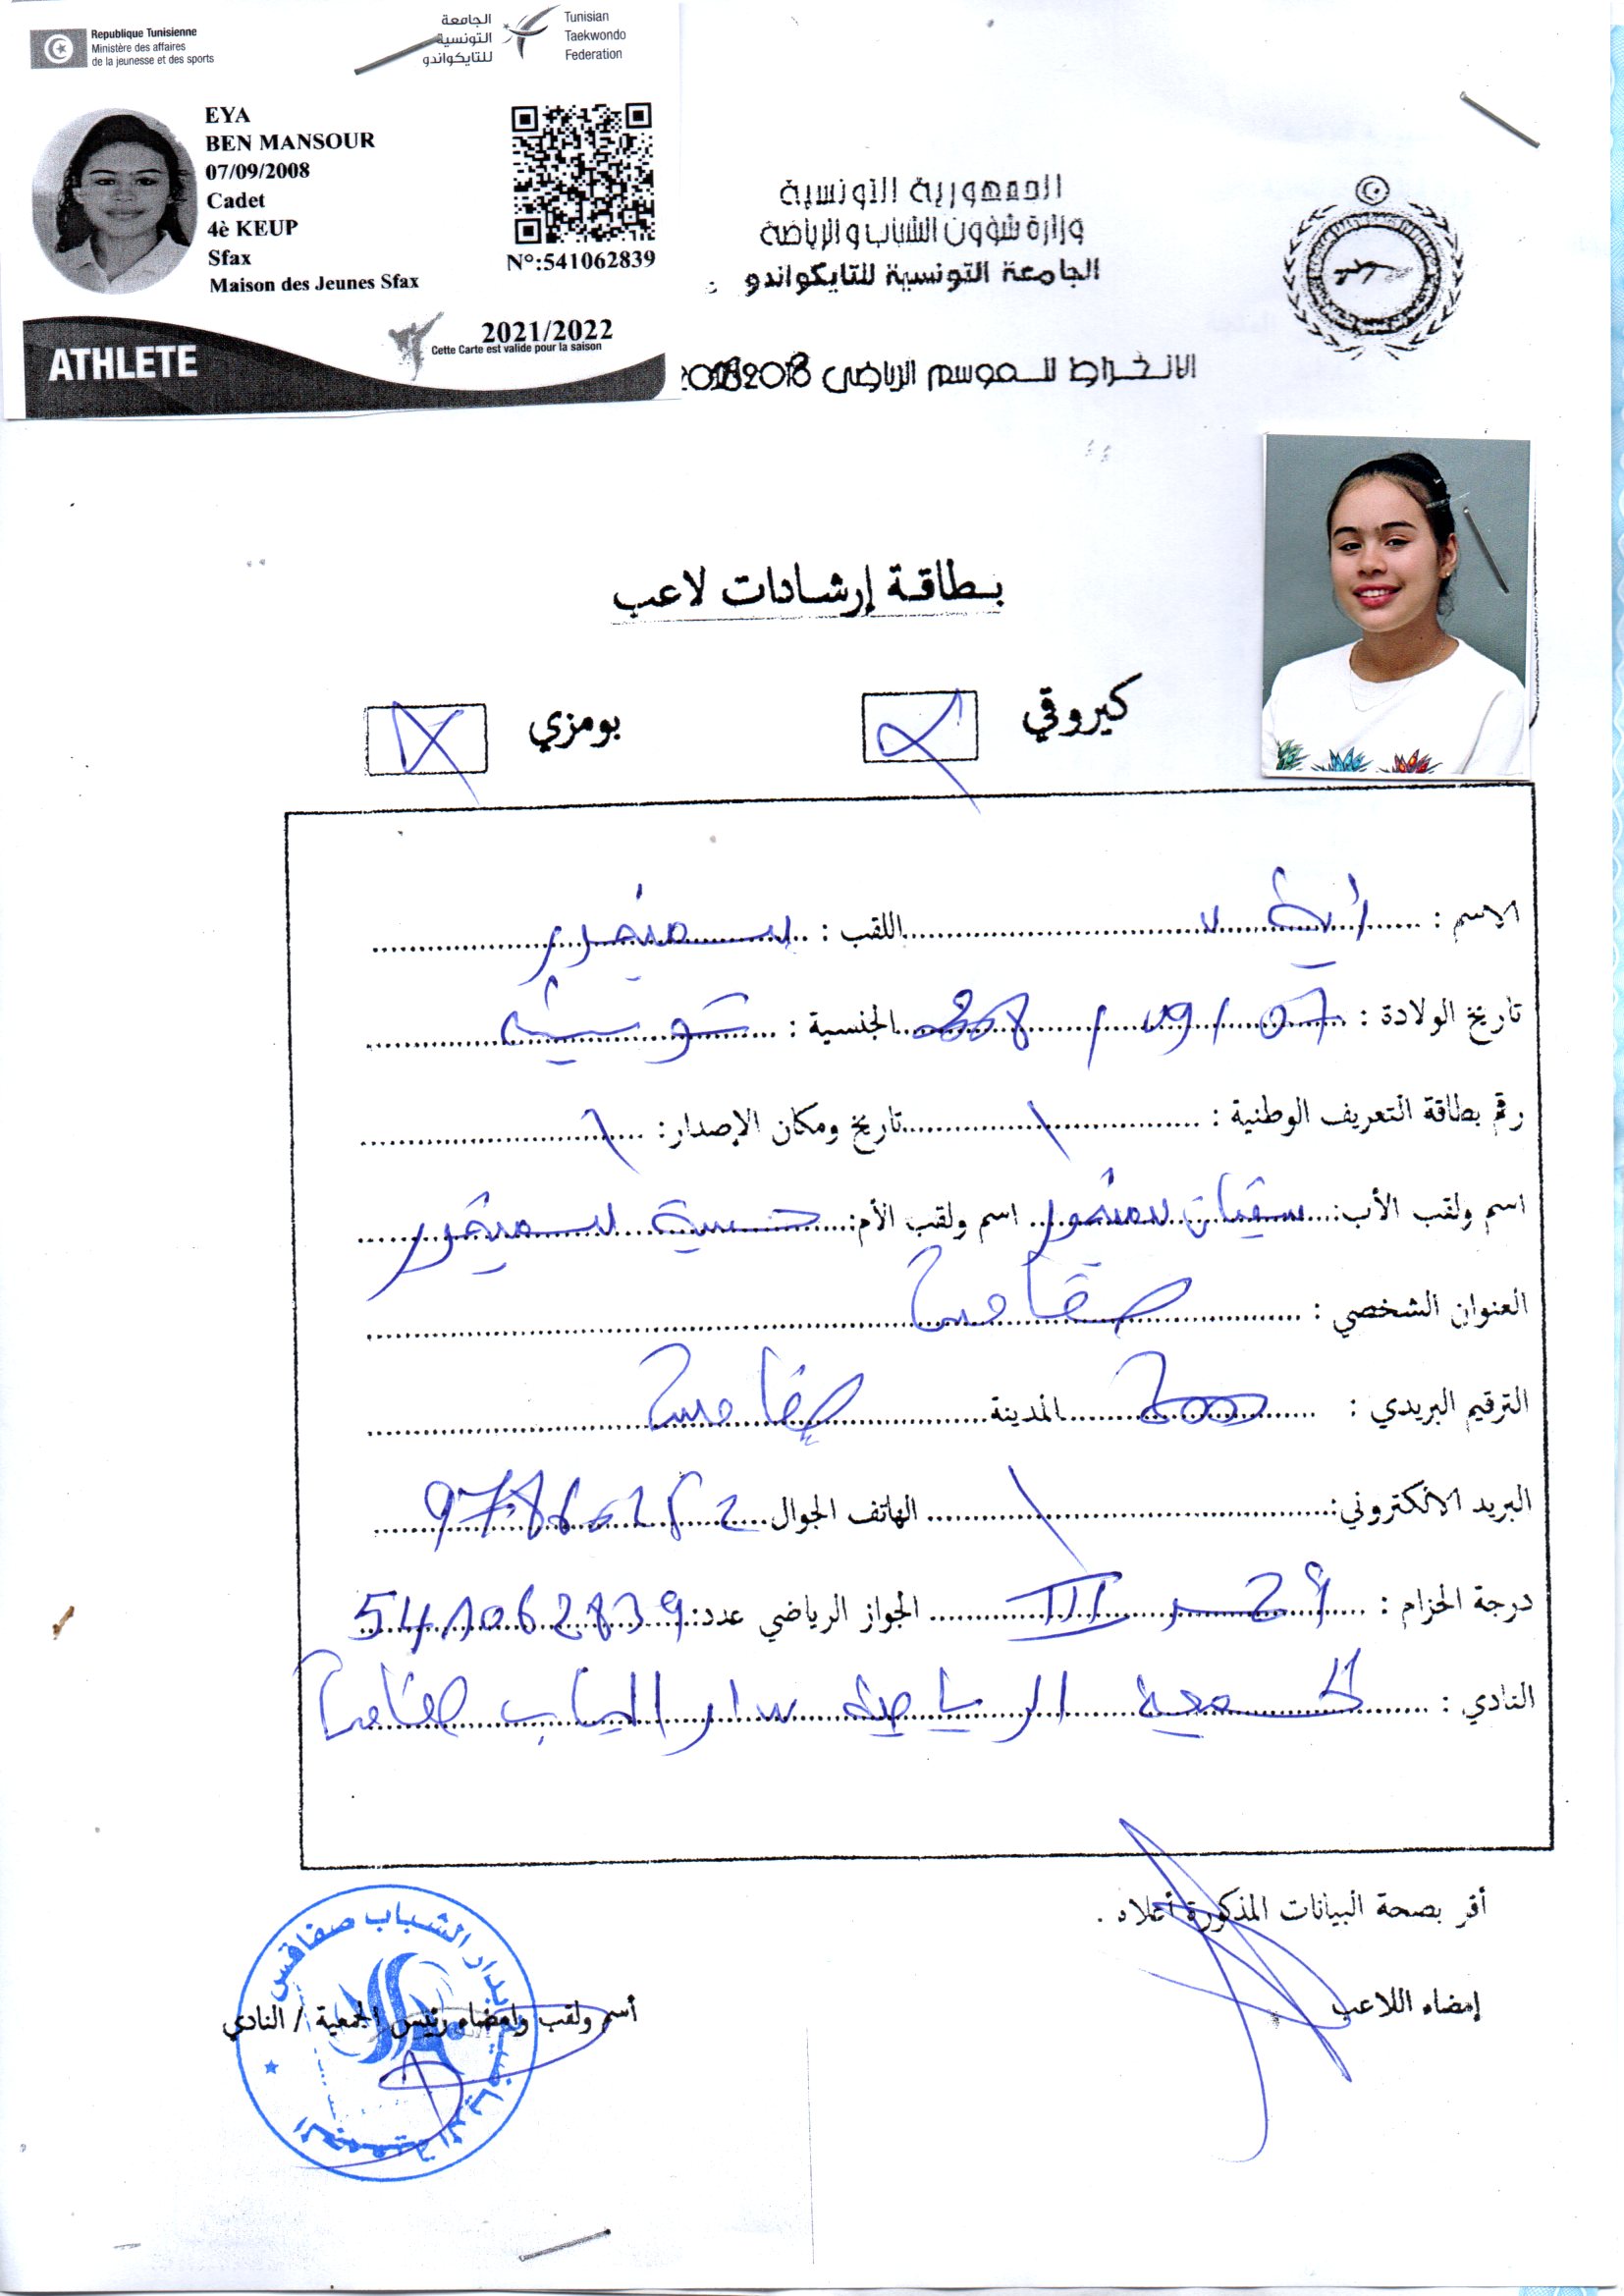 Republique Tunisienne
Ministère des affaires
de la jeunesse et des sports
الجامعة
التونسية
للتايكواندو
Tunisian
Taekwondo
Federation
EYA
BEN MANSOUR
07/09/2008
Cadet
4è KEUP
Sfax
Maison des Jeunes Sfax
N°:541062839
2021/2022
Cette Carte est valide pour la saison
ATHLETE
الجمهورية التونسية
وزارة شؤون الشباب والرياضة
الجامعة التونسية للتايكواندو
الانخراط للموسم الرياضي
بطاقة إرشادات لاعب
كيروقي
بومزي
الاسم : أية اللقب : بن منصور
تاريخ الولادة : 07 / 09 / 2008 الجنسية : تونسية
رقم بطاقة التعريف الوطنية : \ تاريخ ومكان الإصدار: \
اسم ولقب الأب: سفيان بن منصور اسم ولقب الأم: بن منصور
العنوان الشخصي : صفاقس
الترقيم البريدي : 3000 المدينة صفاقس
البريد الالكتروني: \ الهاتف الجوال
درجة الحزام : أحمر III الجواز الرياضي عدد: 541062839
النادي : الجمعية الرياضية بدار الشباب صفاقس
أقر بصحة البيانات المذكورة أعلاه .
إمضاء اللاعب
أسم ولقب وامضاء رئيس الجمعية / النادي
الجمعية الرياضية بدار الشباب صفاقس